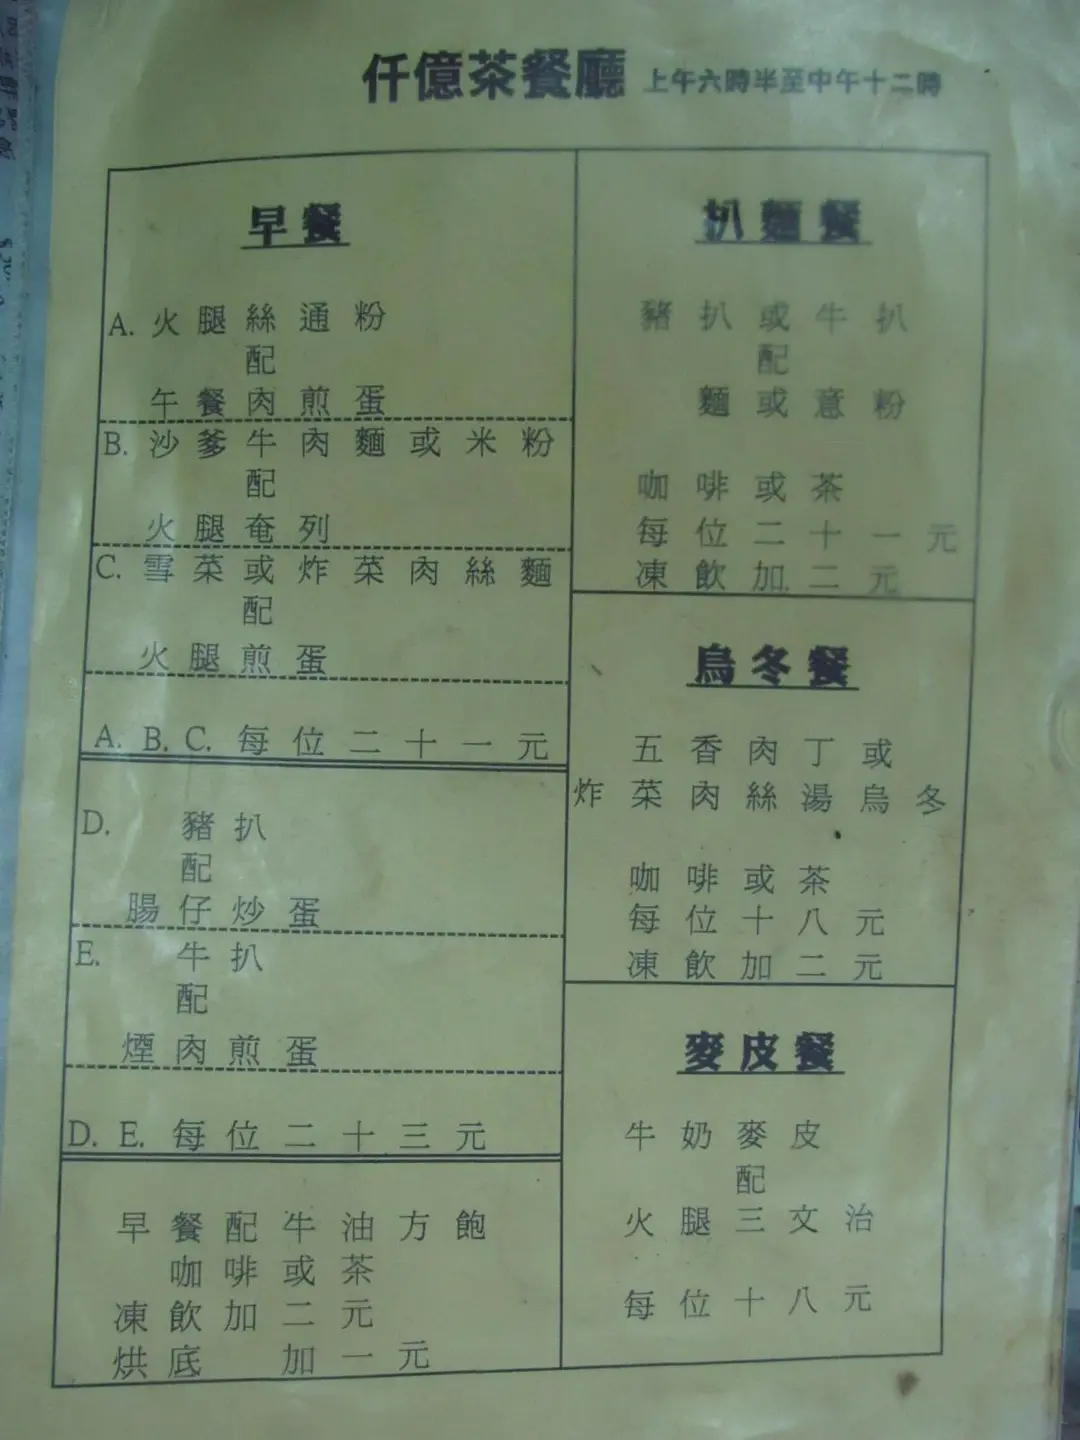 仟億茶餐廳 上午六時半至中午十二時
早餐
A. 火腿絲通粉
配
午餐肉煎蛋
B. 沙爹牛肉麵或米粉
配
火腿奄列
C. 雪菜或炸菜肉絲麵
配
火腿煎蛋
A. B. C. 每位二十一元
D. 豬扒
配
腸仔炒蛋
E. 牛扒
配
煙肉煎蛋
D. E. 每位二十三元
早餐配牛油方飽
咖啡或茶
凍飲加二元
烘底 加一元
扒麵餐
豬扒或牛扒
配
麵或意粉
咖啡或茶
每位二十一元
凍飲加二元
烏冬餐
五香肉丁或
炸菜肉絲湯烏冬
咖啡或茶
每位十八元
凍飲加二元
麥皮餐
牛奶麥皮
配
火腿三文治
每位十八元